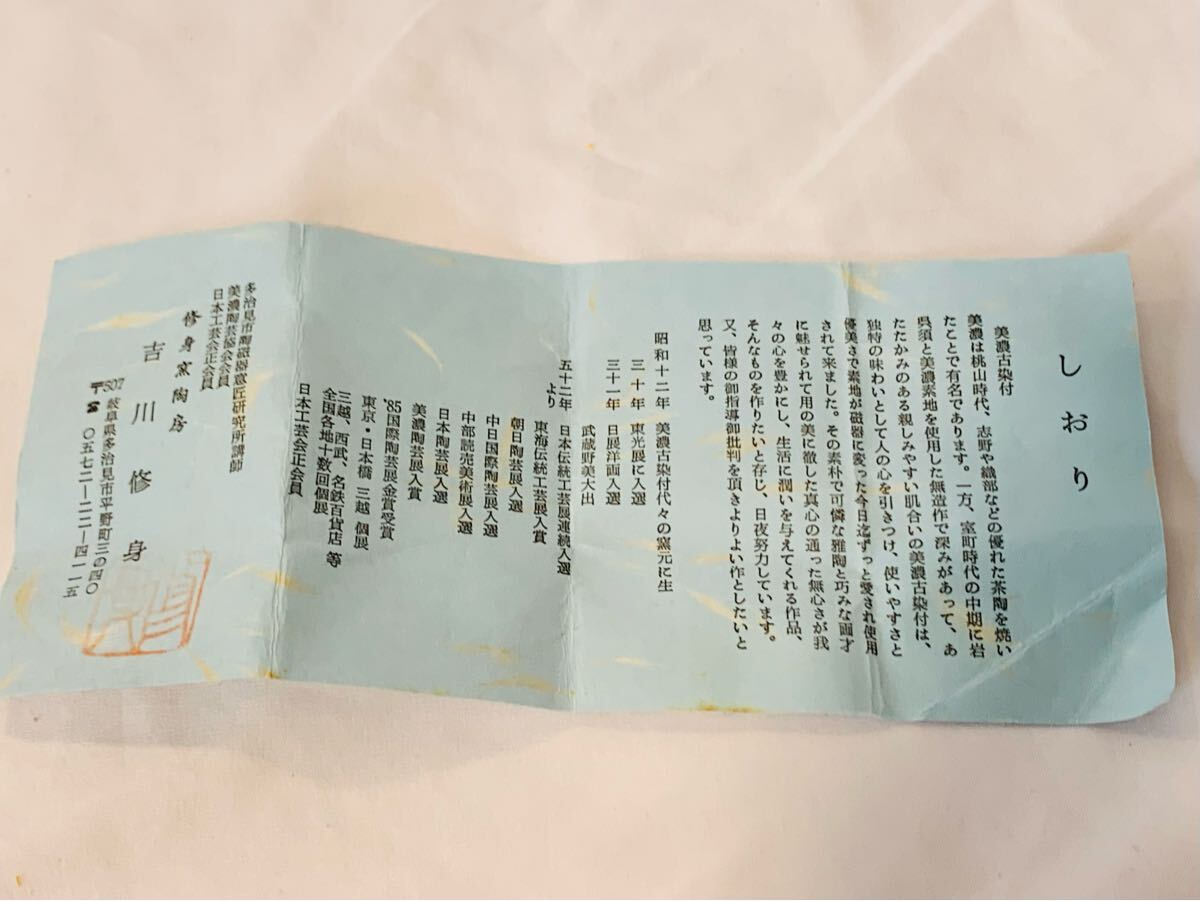 しおり
美濃古染付
美濃は桃山時代、志野や織部などの優れた茶陶を焼い
たことで有名であります。一方、室町時代の中期に岩
呉須と美濃素地を使用した無造作で深みがあって、あ
たたかみのある親しみやすい肌合いの美濃古染付は、
独特の味わいとして人の心を引きつけ、使いやすさと
優美さで素地が磁器に変った今日迄ずっと愛され使用
されて来ました。その素朴で可憐な雅陶と巧みな画才
に魅せられて用の美に徹した真心の通った無心さが我
々の心を豊かにし、生活に潤いを与えてくれる作品、
そんなものを作りたいと存じ、日夜努力しています。
又、皆様の御指導御批判を頂きよりよい作としたいと
思っています。
昭和十二年 美濃古染付代々の窯元に生
三十年 東光展に入選
三十一年 日展洋画入選
武蔵野美大出
五十二年 日本伝統工芸展連続入選
より
東海伝統工芸展入賞
朝日陶芸展入選
中日国際陶芸展入選
中部読売美術展入選
日本陶芸展入選
美濃陶芸展入賞
'85国際陶芸展金賞受賞
東京・日本橋 三越 個展
三越、西武、名鉄百貨店 等
全国各地十数回個展
日本工芸会正会員
多治見市陶磁器意匠研究所講師
美濃陶芸協会会員
日本工芸会正会員
修身窯陶房
吉川修身
〒507 岐阜県多治見市平野町三の四〇
☎ 〇五七二―二二―四一一五